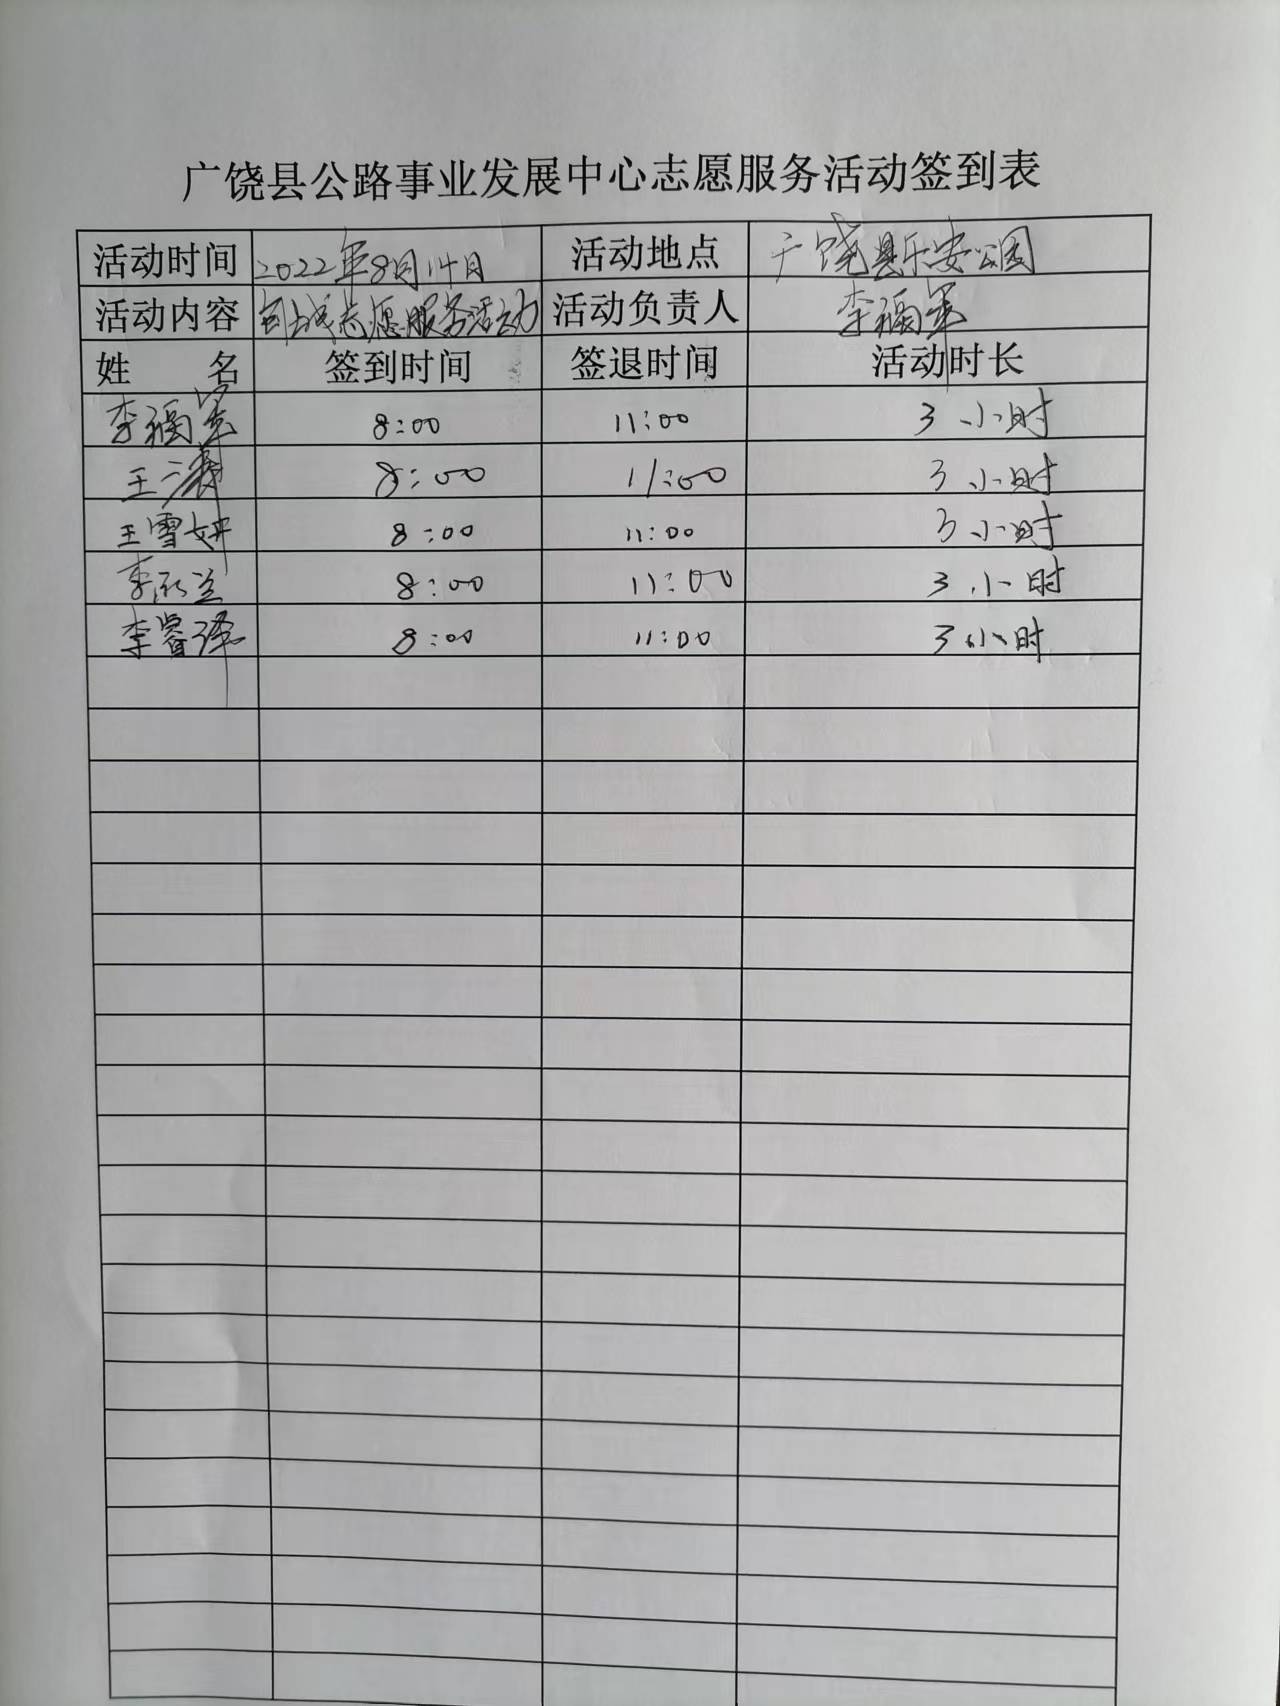 广饶县公路事业发展中心志愿服务活动签到表
活动时间 2022年8月14日 活动地点 广饶县乐安公园
活动内容 创城志愿服务活动 活动负责人 李福军
姓 名 签到时间 签退时间 活动时长
李福军 8:00 11:00 3小时
王 8:00 11:00 3小时
王雪妍 8:00 11:00 3小时
李 8:00 11:00 3小时
李睿泽 8:00 11:00 3小时